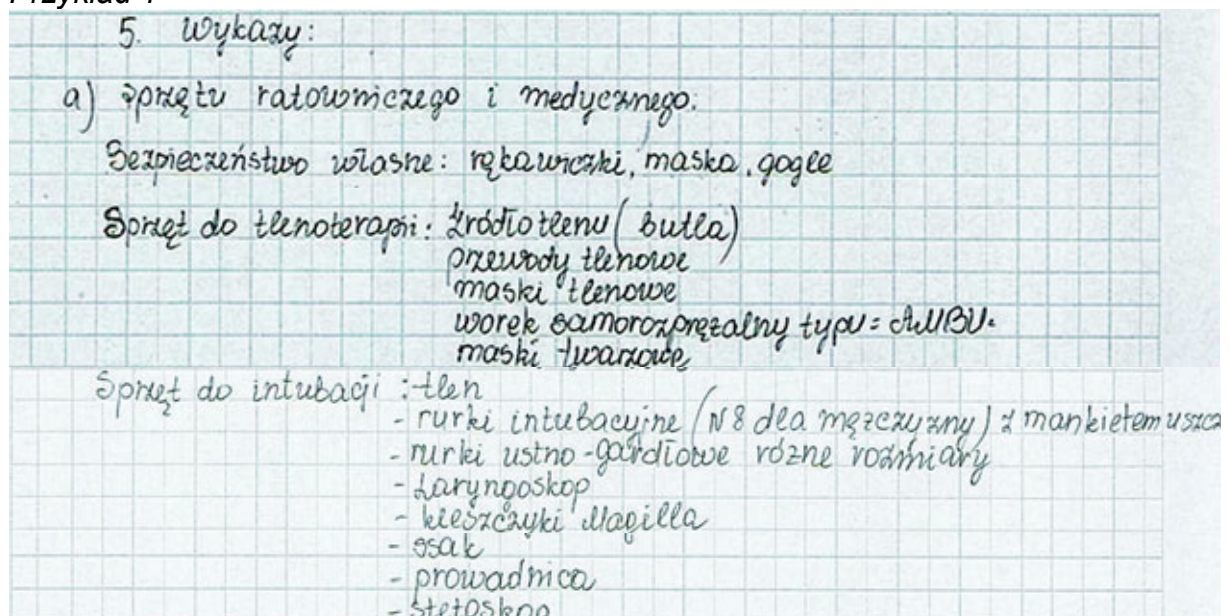 5. Wykazy:
a) sprzętu ratowniczego i medycznego:
Bezpieczeństwo własne: rękawiczki, maska, gogle
Sprzęt do tlenoterapii: źródło tlenu (butla)
przewody tlenowe
maski tlenowe
worek samorozprężalny typu = AMBU =
maski twarzowe
Sprzęt do intubacji: tlen
- rurki intubacyjne (N8 dla mężczyzny) z mankietem uszcz
- rurki ustno-gardłowe różne rozmiary
- Laryngoskop
- kleszczyki Magilla
- ssak
- prowadnica
- stetoskop